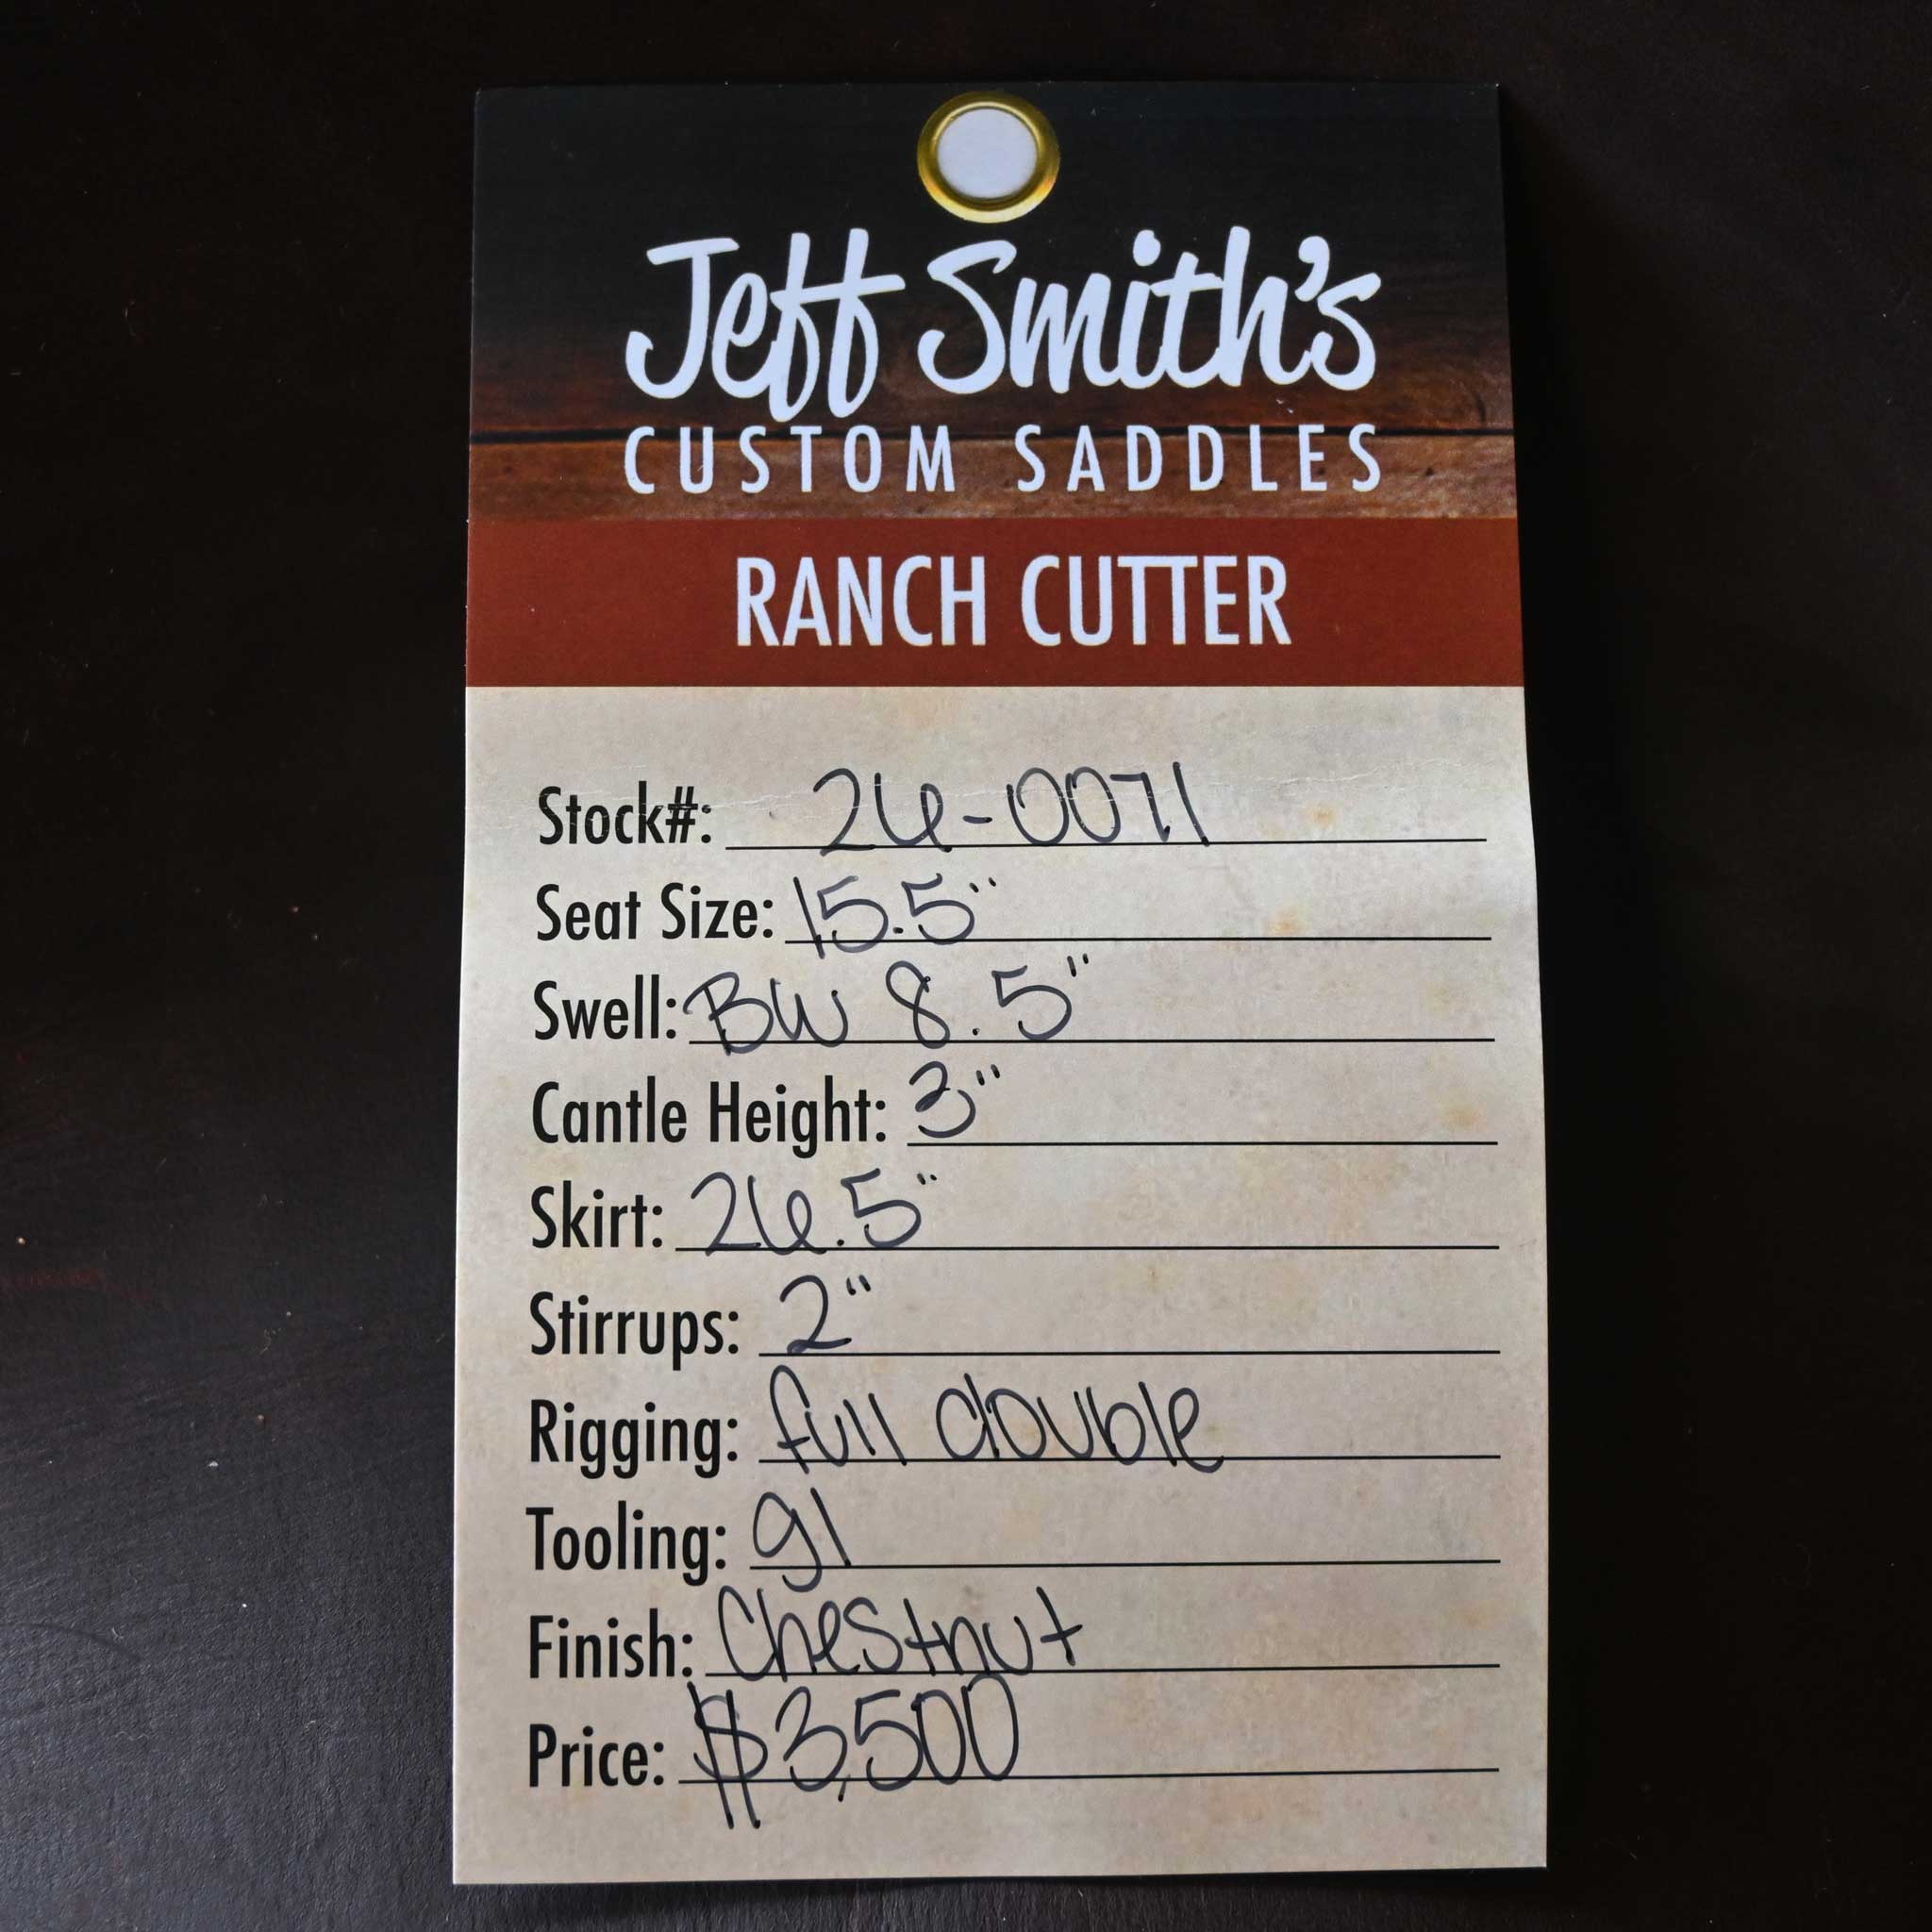 Jeff Smith's
CUSTOM SADDLES
RANCH CUTTER
Stock#: 26-0071
Seat Size: 15.5"
Swell: BW 8.5"
Cantle Height: 3"
Skirt: 26.5"
Stirrups: 2"
Rigging: full double
Tooling: g1
Finish: Chestnut
Price: $3,500